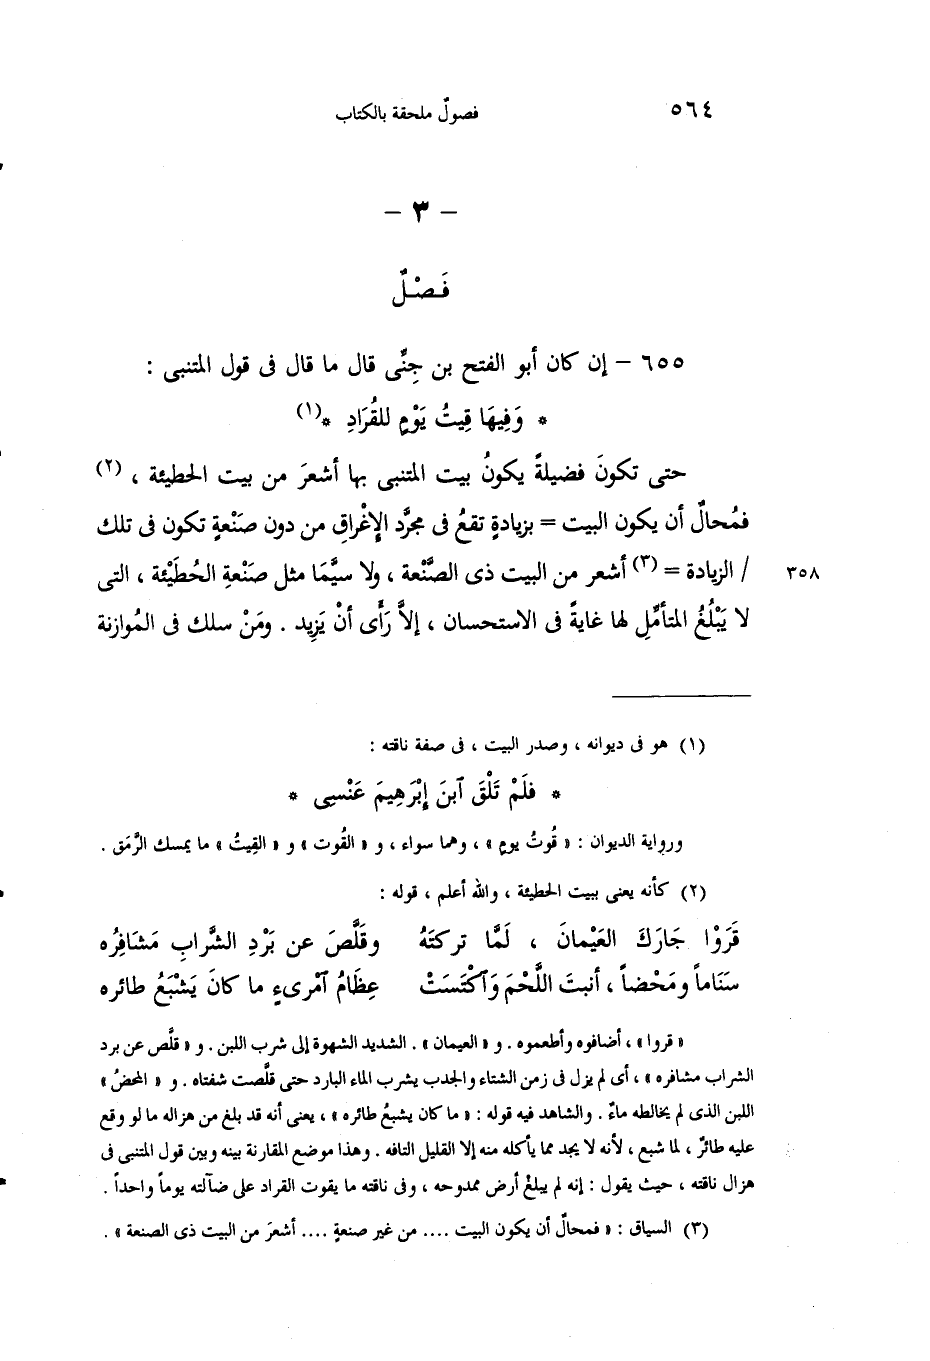 ٥٦٤ فصولٌ ملحقة بالكتاب
- ٣ -
فَصْلٌ
٦٥٥ – إن كان أبو الفتح بن جِنِّى قال ما قال فى قول المتنبى :
* وَفِيهَا قِيتُ يَوْمٍ للقُرَادِ *(١)
حتى تكونَ فضيلةً يكونُ بيت المتنبى بها أشعرَ من بيت الحطيئة ، (٢)
فمُحالٌ أن يكون البيت = بزيادةٍ تقعُ فى مجرَّد الإغْراقِ من دون صَنْعةٍ تكون فى تلك
/ الزيادة = (٣) أشعر من البيت ذى الصَّنْعة ، ولا سيَّمَا مثل صَنْعةِ الحُطَيْئة ، التى ٣٥٨
لا يَبْلُغُ المتأمِّل لها غايةً فى الاستحسان ، إلاَّ رَأَى أنْ يَزِيد . ومَنْ سلك فى المُوازنة
(١) هو فى ديوانه ، وصدر البيت ، فى صفة ناقته :
* فلَمْ تَلْقَ ٱبنَ إِبْرَهِيمَ عَنْسِى *
ورواية الديوان : « قُوتُ يومٍ » ، وهما سواء ، و « القُوت » و « القِيتُ » ما يمسك الرَّمَق .
(٢) كأنه يعنى ببيت الحطيئة ، والله أعلم ، قوله :
قَرَوْا جَارَكَ العَيْمانَ ، لَمَّا تركتَهُ وقَلَّصَ عن بَرْدِ الشَّرابِ مَشَافِرُه
سَنَاماً ومَحْضاً ، أنبتَ اللَّحْمَ وَٱكْتَسَتْ عِظَامُ ٱمْرِىءٍ ما كانَ يَشْبَعُ طائره
« قروا » ، أضافوه وأطعموه . و « العيمان » . الشديد الشهوة إلى شرب اللبن . و « قلَّص عن برد
الشراب مشافره » ، أى لم يزل فى زمن الشتاء والجدب يشرب الماء البارد حتى قلَّصت شفتاه . و « المحضُ »
اللبن الذى لم يخالطه ماءٌ . والشاهد فيه قوله : « ما كان يشبعُ طائره » ، يعنى أنه قد بلغ من هزاله ما لو وقع
عليه طائرٌ ، لما شبع ، لأنه لا يجد مما يأكله منه إلا القليل التافه . وهذا موضع المقارنة بينه وبين قول المتنبى فى
هزال ناقته ، حيث يقول : إنه لم يبلغْ أرض ممدوحه ، وفى ناقته ما يقوت القراد على ضآلته يوماً واحداً .
(٣) السياق : « فمحالٌ أن يكون البيت .... من غير صنعةٍ .... أشعرَ من البيت ذى الصنعة » .